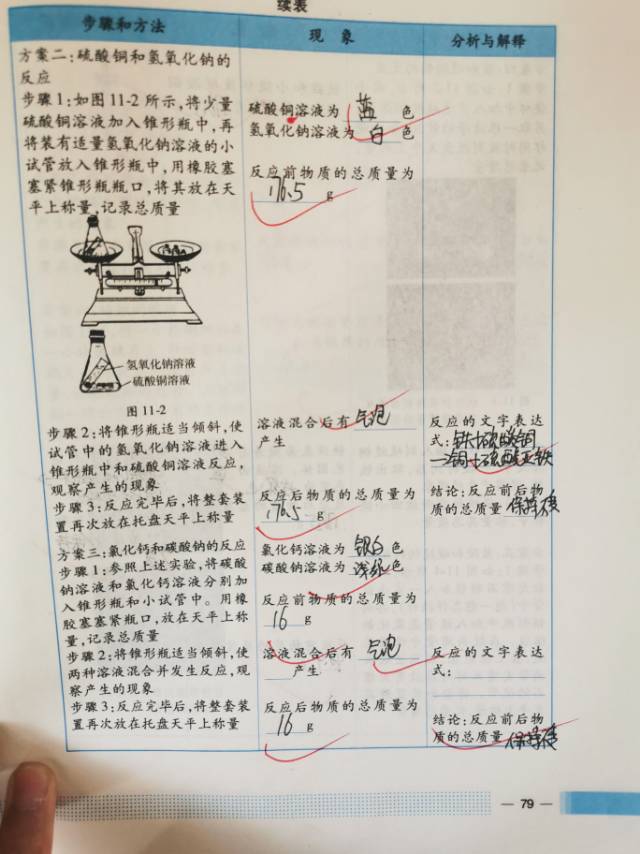 续表
步骤和方法
现象
分析与解释
方案二:硫酸铜和氢氧化钠的
反应
步骤1:如图11-2所示,将少量
硫酸铜溶液加入锥形瓶中,再
将装有适量氢氧化钠溶液的小
试管放入锥形瓶中,用橡胶塞
塞紧锥形瓶瓶口,将其放在天
平上称量,记录总质量
硫酸铜溶液为 蓝 色
氢氧化钠溶液为 白 色
反应前物质的总质量为
176.5 g
氢氧化钠溶液
硫酸铜溶液
图11-2
步骤2:将锥形瓶适当倾斜,使
试管中的氢氧化钠溶液进入
锥形瓶中和硫酸铜溶液反应,
观察产生的现象
步骤3:反应完毕后,将整套装
置再次放在托盘天平上称量
溶液混合后有 气泡
产生
反应后物质的总质量为
176.5 g
反应的文字表达
式:铁+硫酸铜
→铜+硫酸亚铁
结论:反应前后物
质的总质量 保持不变
方案三:氯化钙和碳酸钠的反应
步骤1:参照上述实验,将碳酸
钠溶液和氯化钙溶液分别加
入锥形瓶和小试管中。用橡
胶塞塞紧瓶口,放在天平上称
量,记录总质量
步骤2:将锥形瓶适当倾斜,使
两种溶液混合并发生反应,观
察产生的现象
步骤3:反应完毕后,将整套装
置再次放在托盘天平上称量
氯化钙溶液为 银白 色
碳酸钠溶液为 浅绿 色
反应前物质的总质量为
16 g
溶液混合后有 气泡
产生
反应后物质的总质量为
16 g
反应的文字表达
式:
结论:反应前后物
质的总质量 保持不变
— 79 —